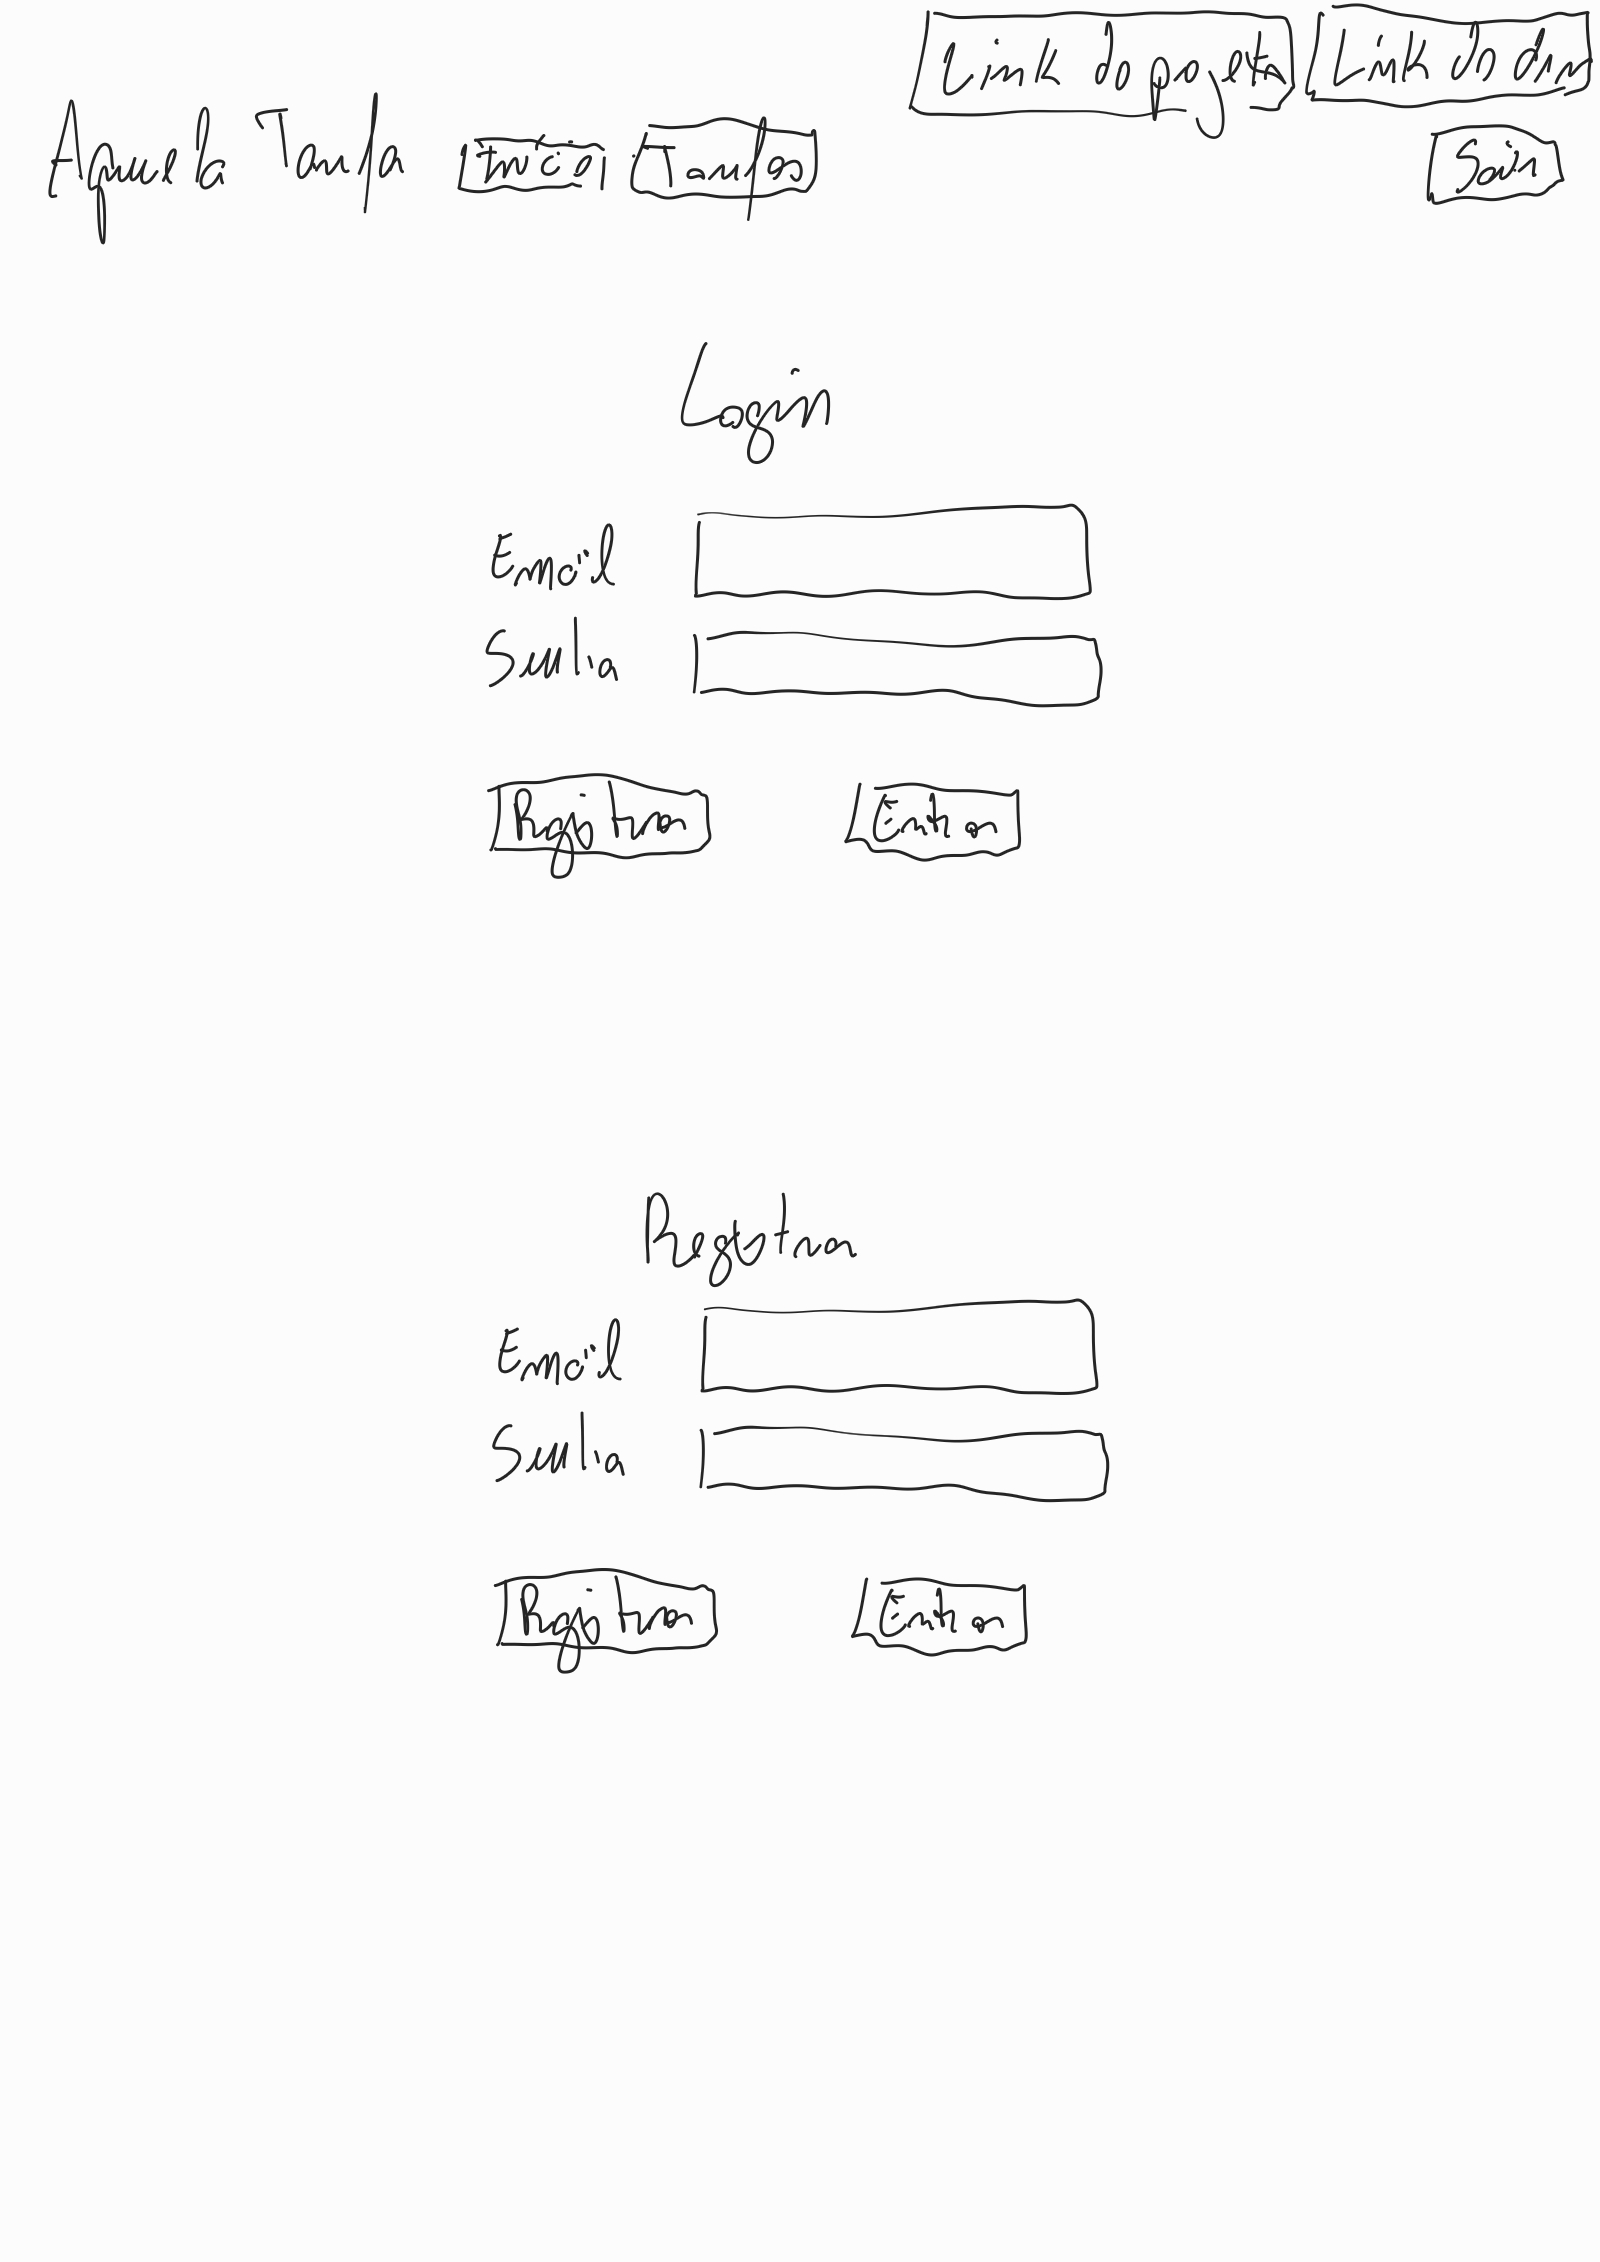 Link do projeto Link do drn
Aquela Tarefa Início Tarefas Sair
Login
Email
Senha
Registrar Entrar
Registrar
Email
Senha
Registrar Entrar